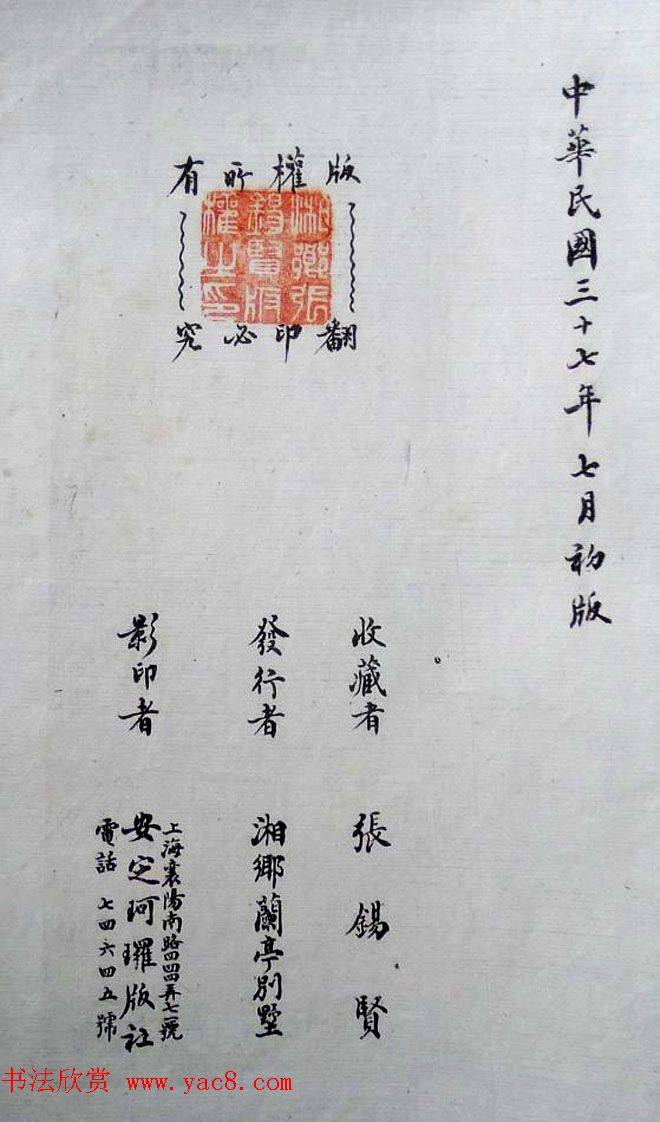 中華民國三十七年七月初版
版權所有
湘鄉張
錫賢版
權之印
翻印必究
收藏者 張錫賢
發行者 湘鄉蘭亭別墅
影印者 安定珂羅版社
上海襄陽南路四四弄七號
電話 七四六四五號
书法欣赏 www.yac8.com